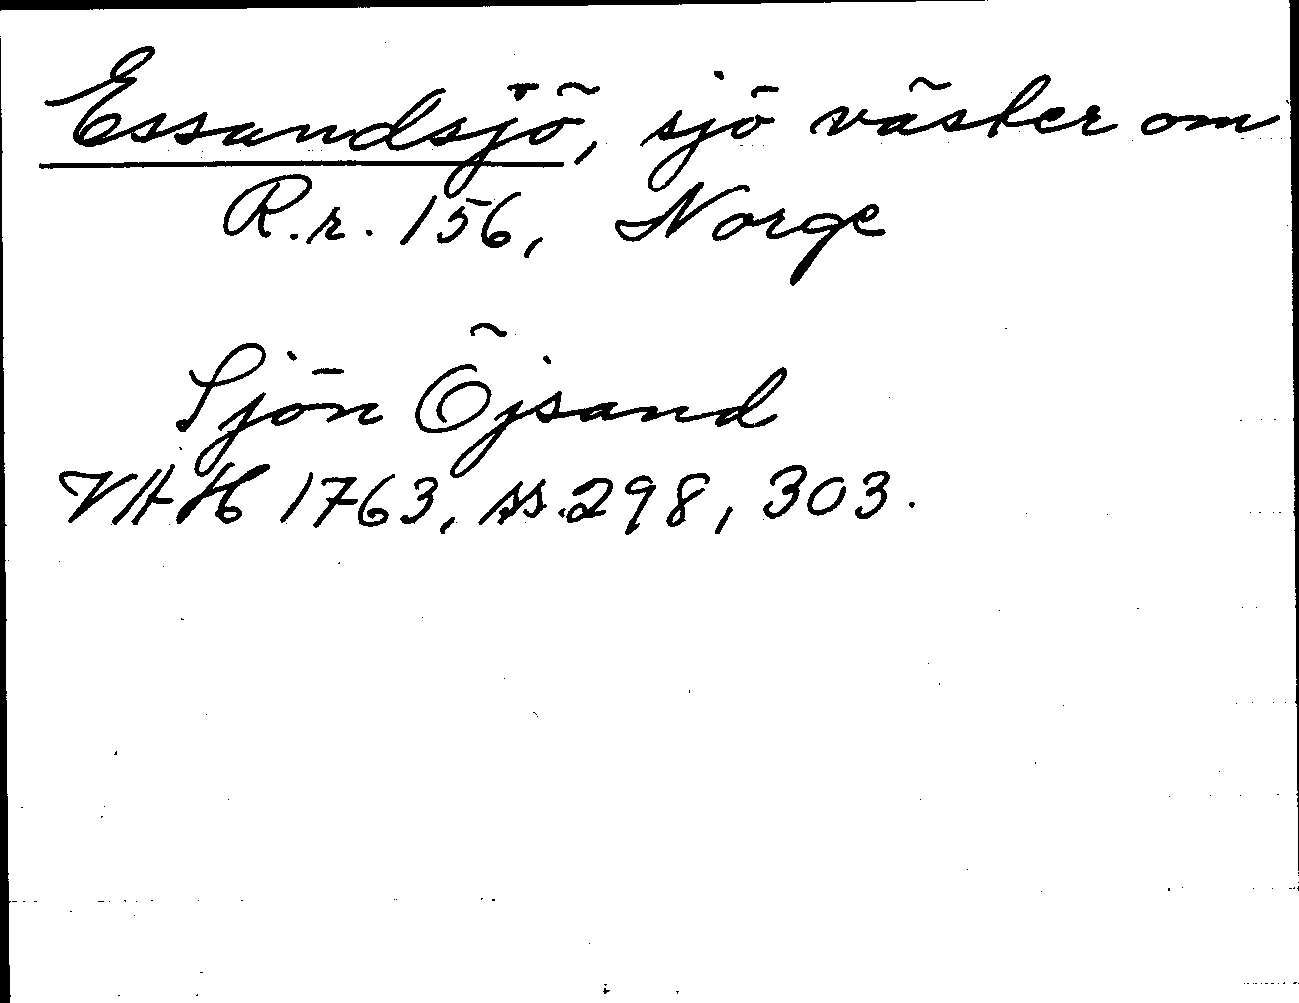 Essandsjö, sjö väster om
R.r. 156, Norge
Sjön Öjsand
VHH 1763, ss. 298, 303.